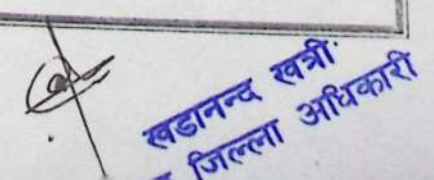 खडानन्द खत्री
जिल्ला अधिकारी